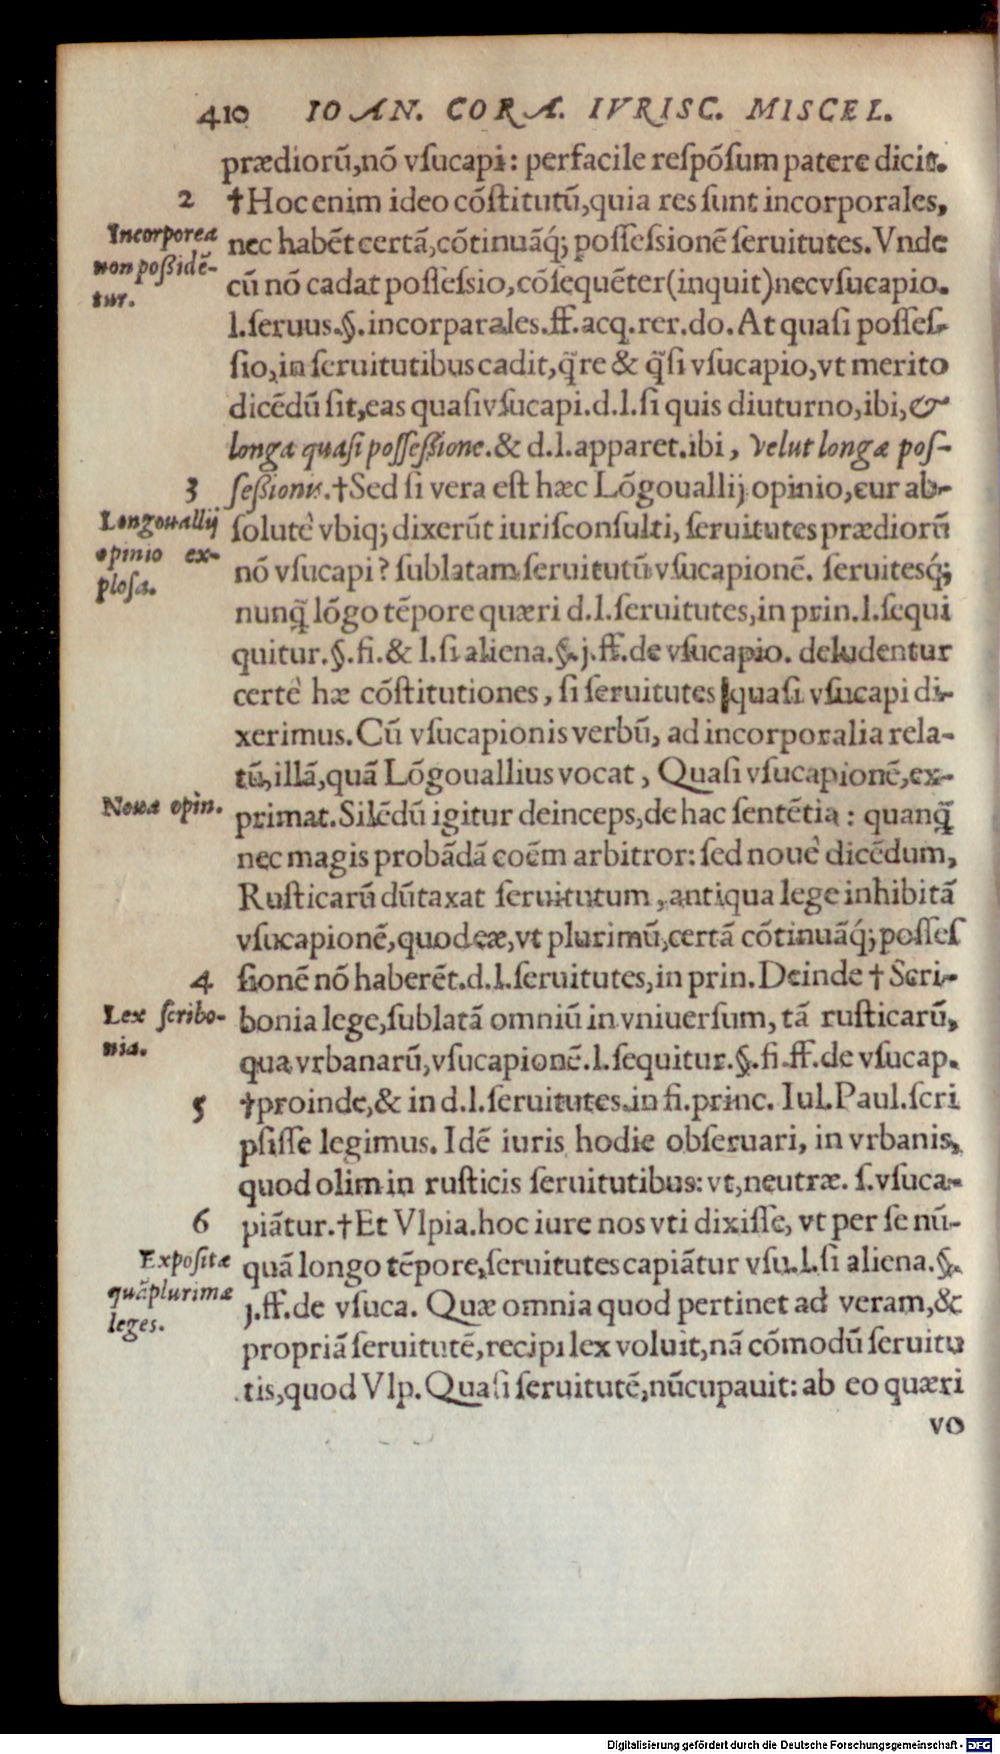 410 IOAN. CORA. IVRISC. MISCEL.
prædiorũ,nõ vſucapi: perfacile reſpõſum patere dicit.
2 †Hoc enim ideo cõſtitutũ,quia res ſunt incorporales,
Incorporea
non poßidẽ-
tur.
nec habẽt certã,cõtinuãq́; poſſeſsionẽ ſeruitutes. Vnde
cũ nõ cadat poſſeſsio,cõſequẽter(inquit)nec vſucapio.
l.ſeruus.§.incorparales.ff.acq.rer.do. At quaſi poſſeſ-
ſio,in ſeruitutibus cadit,q̃re & q̃ſi vſucapio,vt merito
dicẽdũ ſit,eas quaſi vſucapi.d.l.ſi quis diuturno,ibi,&
longa quaſi poſſeßione.& d.l.apparet.ibi, velut longæ poſ-
3 ſeßionis.†Sed ſi vera eſt hæc Lõgouallij opinio,cur ab-
Longouallij
opinio ex-
ploſa.
ſolutè vbiq; dixerũt iuriſconſulti, ſeruitutes prædiorũ
nõ vſucapi? ſublatam ſeruitutũ vſucapionẽ. ſeruiteſq́;
nunq̃ lõgo tẽpore quæri d.l.ſeruitutes,in prin.l.ſequi
quitur.§.fi.& l.ſi aliena.§.j.ff.de vſucapio. deludentur
certè hæ cõſtitutiones, ſi ſeruitutes quaſi vſucapi di-
xerimus. Cũ vſucapionis verbũ, ad incorporalia rela-
tũ,illã,quã Lõgouallius vocat, Quaſi vſucapionẽ,ex-
Noua opin.
primat. Silẽdũ igitur deinceps,de hac ſentẽtia: quanq̃
nec magis probãdã eoẽm arbitror: ſed nouè dicẽdum,
Ruſticarũ dũtaxat ſeruitutum, antiqua lege inhibitã
vſucapionẽ,quod eæ,vt plurimũ,certã cõtinuãq́; poſſeſ
4 ſionẽ nõ haberẽt.d.l.ſeruitutes,in prin. Deinde † Scri-
Lex ſcribo-
nia.
bonia lege,ſublatã omniũ in vniuerſum, tã ruſticarũ,
qua vrbanarũ,vſucapionẽ.l.ſequitur.§.fi.ff.de vſucap.
5 †proinde,& in d.l.ſeruitutes.in fi.princ. Iul.Paul.ſcri
pſiſſe legimus. Idẽ iuris hodie obſeruari, in vrbanis,
quod olim in ruſticis ſeruitutibus: vt,neutræ. ſ.vſuca-
6 piãtur.†Et Vlpia.hoc iure nos vti dixiſſe, vt per ſe nũ-
Expoſitæ
quãplurimæ
leges.
quã longo tẽpore,ſeruitutes capiãtur vſu.l.ſi aliena.§.
j.ff.de vſuca. Quæ omnia quod pertinet ad veram,&
propriã ſeruitutẽ,recipi lex voluit,nã cõmodũ ſeruitu
tis,quod Vlp. Quaſi ſeruitutẽ,nũcupauit: ab eo quæri
vo
Digitalisierung gefördert durch die Deutsche Forschungsgemeinschaft - DFG